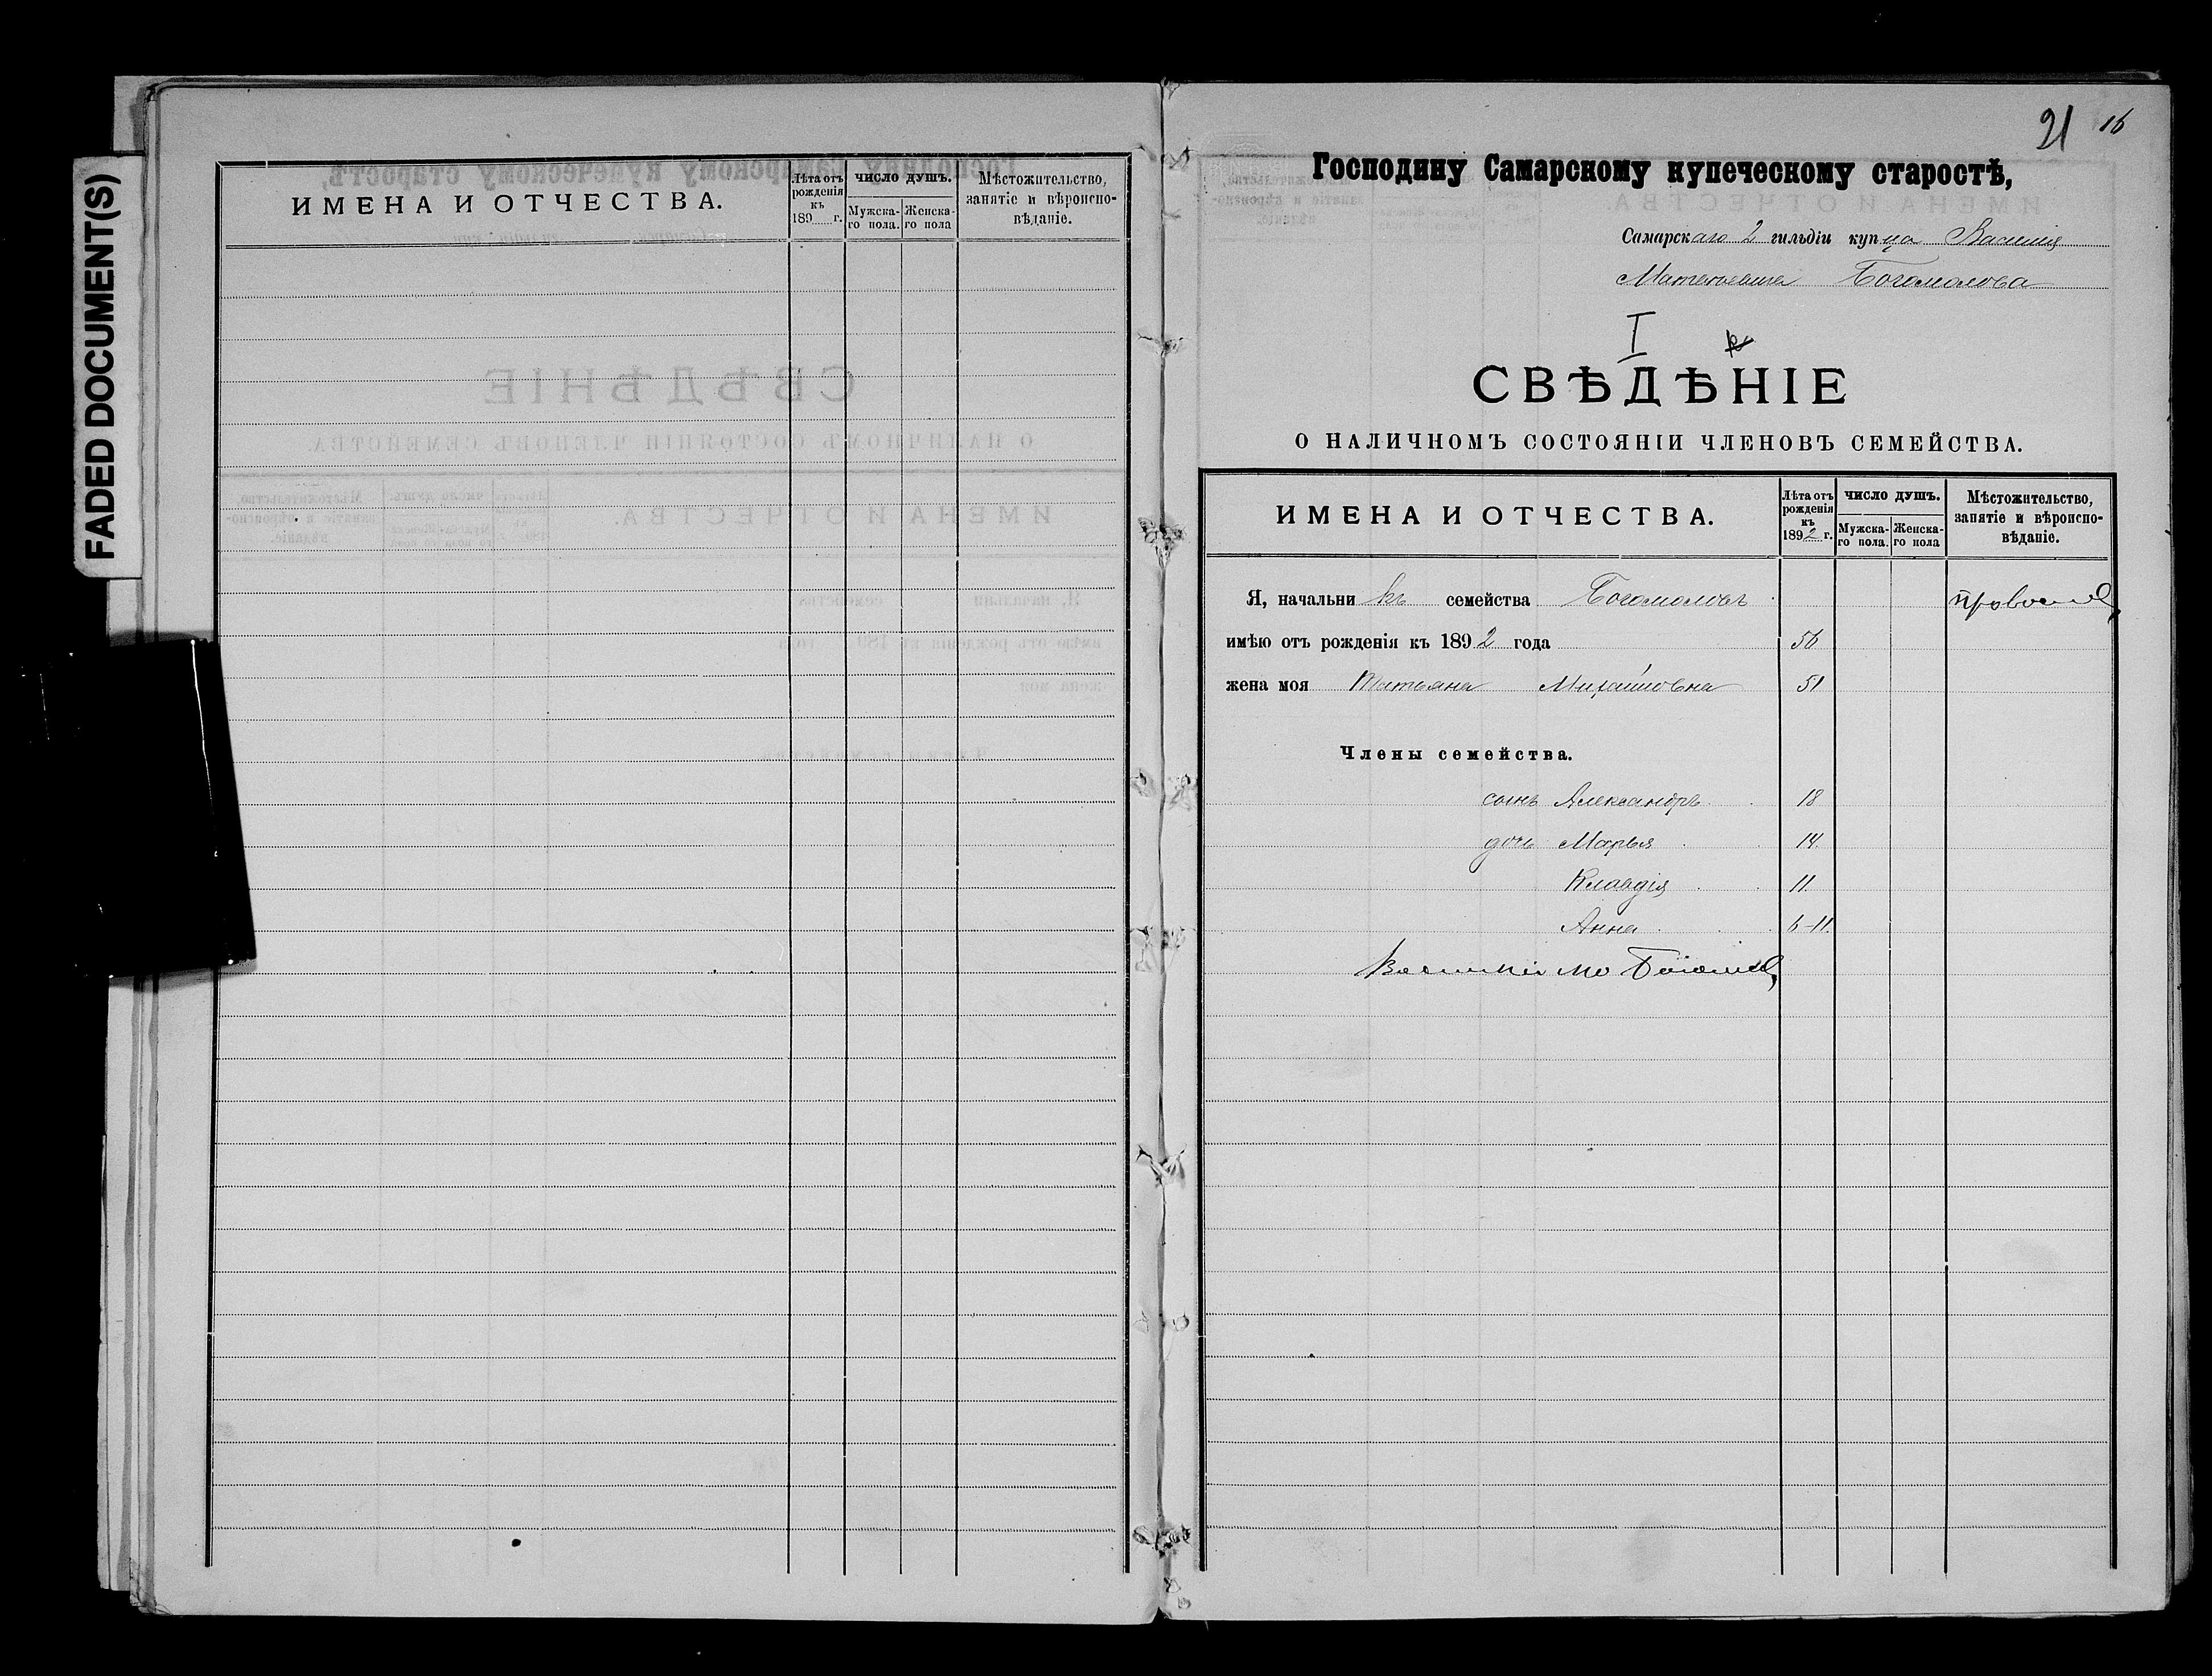 FADED DOCUMENT(S)
ИМЕНА И ОТЧЕСТВА.
Лѣта отъ
рожденія
къ
189 г.
ЧИСЛО ДУШЪ.
Мужска-
го пола.
Женска-
го пола
Мѣстожительство,
занятіе и вѣроиспо-
вѣданіе.
21 16
Господину Самарскому купеческому старостѣ,
Самарскаго 2 гильдіи купца Василія
Матвѣевича Богомолова
I
СВѢДѢНІЕ
О НАЛИЧНОМЪ СОСТОЯНІИ ЧЛЕНОВЪ СЕМЕЙСТВА.
ИМЕНА И ОТЧЕСТВА.
Лѣта отъ
рожденія
къ
1892 г.
ЧИСЛО ДУШЪ.
Мужска-
го пола.
Женска-
го пола
Мѣстожительство,
занятіе и вѣроиспо-
вѣданіе.
Я, начальникъ семейства Богомоловъ
имѣю отъ рожденія къ 1892 года 56
жена моя Татьяна Михайловна 51
Члены семейства.
сынъ Александръ 18
дочь Марья 14.
Клавдія 11.
Анна 6-11.